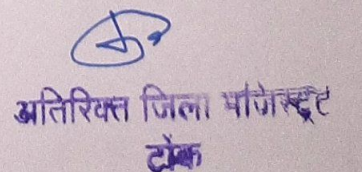 अतिरिक्त जिला मजिस्ट्रेट
टोंक